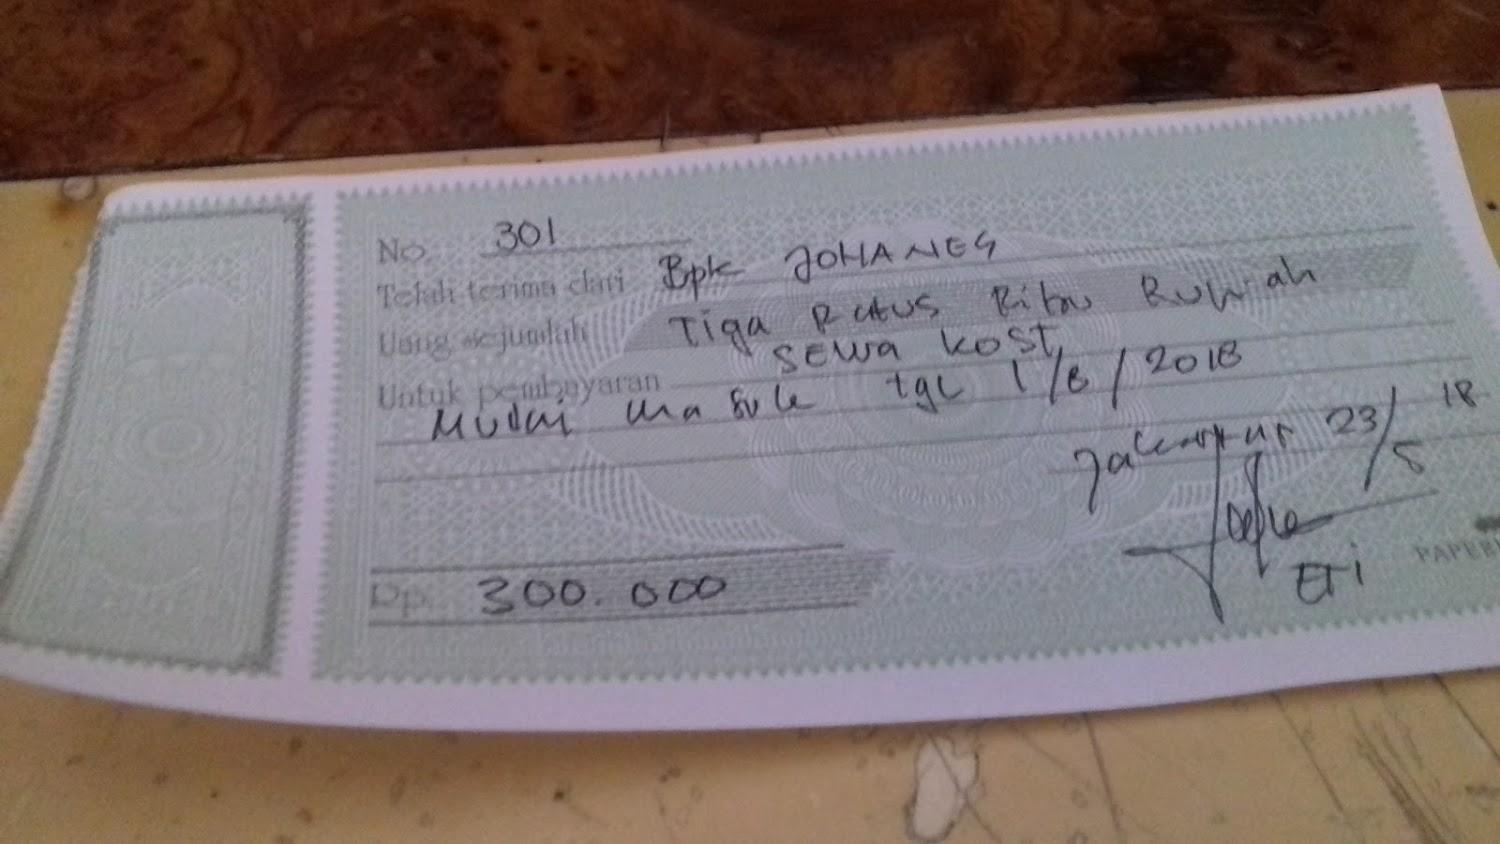 No. 301
Telah terima dari Bpk JOHANES
Uang sejumlah Tiga Ratus Ribu Rupiah
Untuk pembayaran SEWA KOST
Mulai masuk tgl 1/6/2018
23/5 18
Rp. 300.000
Eti
PAPER